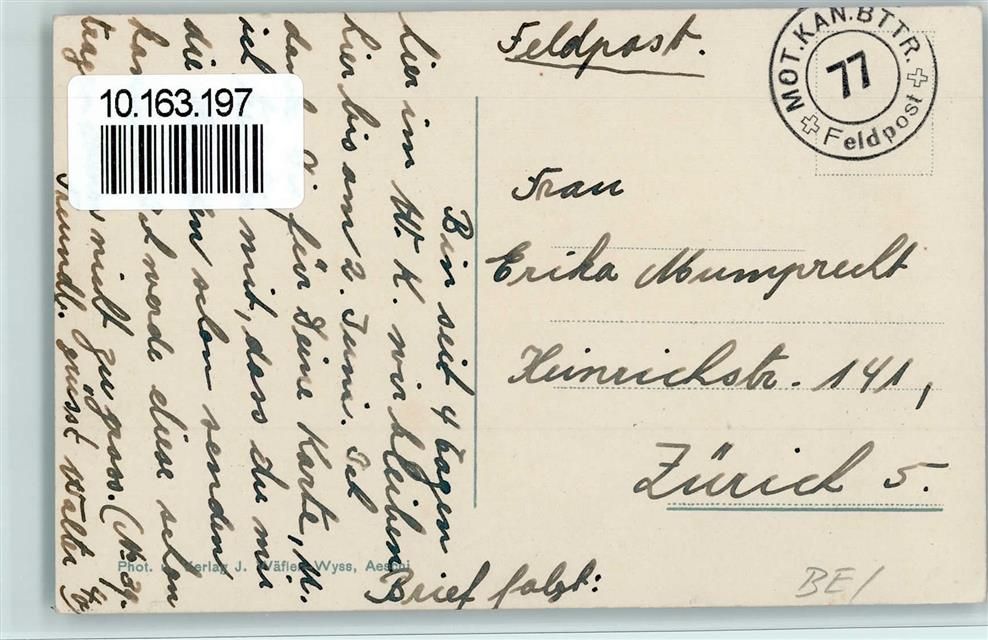 Feldpost.
MOT. KAN. BTTR.
77
Feldpost
Frau
Erika Mumprecht
Heinrichstr. 141,
Zürich 5.
10.163.197
Bin seit 4 Tagen
hier im W. K. wir bleiben
hier bis am 2. Juni. Ich
für Deine Karte,
ich mit, dass du mir
die schon senden
werde diese schon
nicht
Freundl. grüsst Walter
Brief folgt:
Phot. Verlag J. Wäfler-Wyss, Aeschi
BE/